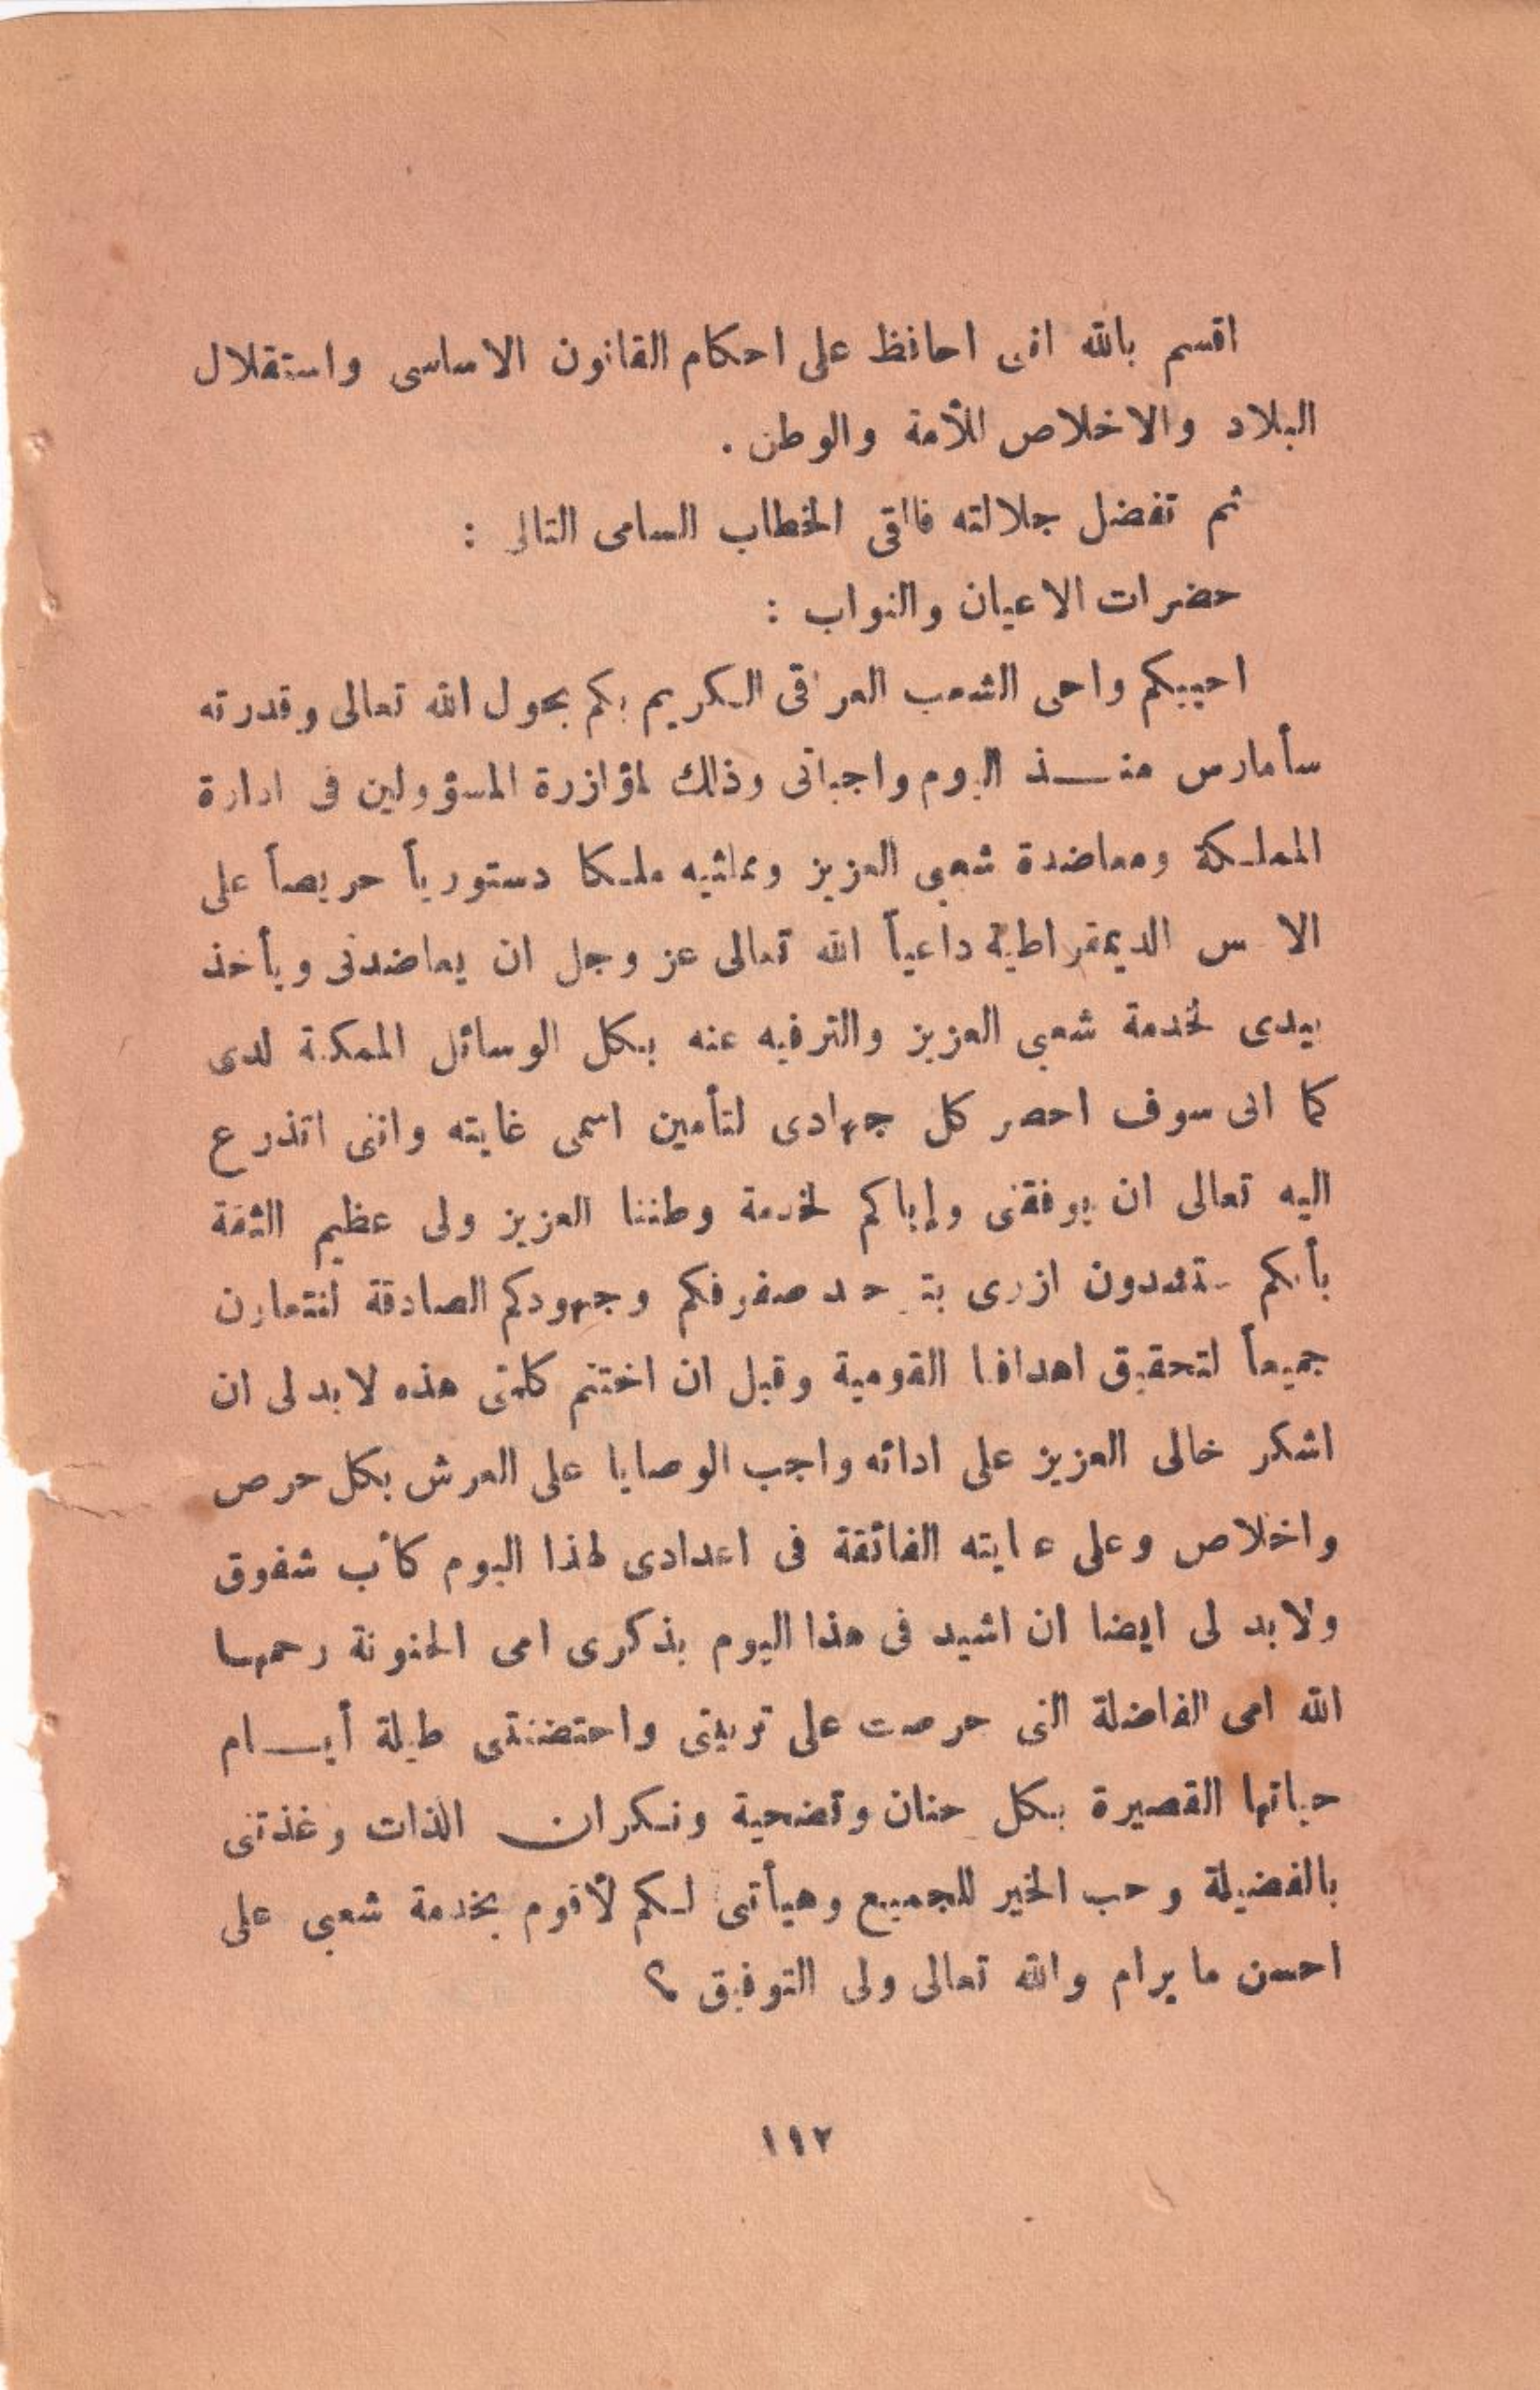 اقسم بالله انى احافظ على احكام القانون الاساسى واستقلال
البلاد والاخلاص للأمة والوطن .
ثم تفضل جلالته فالقى الخطاب السامى التالى :
حضرات الاعيان والنواب :
احييكم واحى الشعب العراقى الكريم بكم بحول الله تعالى وقدرته
سأمارس منـــذ اليوم واجباتى وذلك لمؤازرة المسؤولين فى ادارة
المملكة ومعاضدة شعبى العزيز وممثليه ملكا دستورياً حريصاً على
الاسس الديمقراطية داعياً الله تعالى عز وجل ان يعاضدنى ويأخذ
بيدى لخدمة شعبى العزيز والترفيه عنه بكل الوسائل الممكنة لدى
كما انى سوف احصر كل جهادى لتأمين اسمى غايته واننى اتذرع
اليه تعالى ان يوفقنى وإياكم لخدمة وطننا العزيز ولى عظيم الثقة
بأنكم ستشدون ازرى بتوحد صفوفكم وجهودكم الصادقة لنتعاون
جميعاً لتحقيق اهدافنا القومية وقبل ان اختتم كلمتى هذه لابد لى ان
اشكر خالى العزيز على ادائه واجب الوصايا على العرش بكل حرص
واخلاص وعلى عنايته الفائقة فى اعدادى لهذا اليوم كأب شفوق
ولابد لى ايضا ان اشيد فى هذا اليوم بذكرى امى الحنونة رحمها
الله امى الفاضلة التى حرصت على تربيتى واحتضنتنى طيلة أيـــام
حياتها القصيرة بكل حنان وتضحية ونكران الذات وغذتنى
بالفضيلة وحب الخير للجميع وهيأتنى لكم لأقوم بخدمة شعبى على
احسن ما يرام والله تعالى ولى التوفيق ؟
١١٢